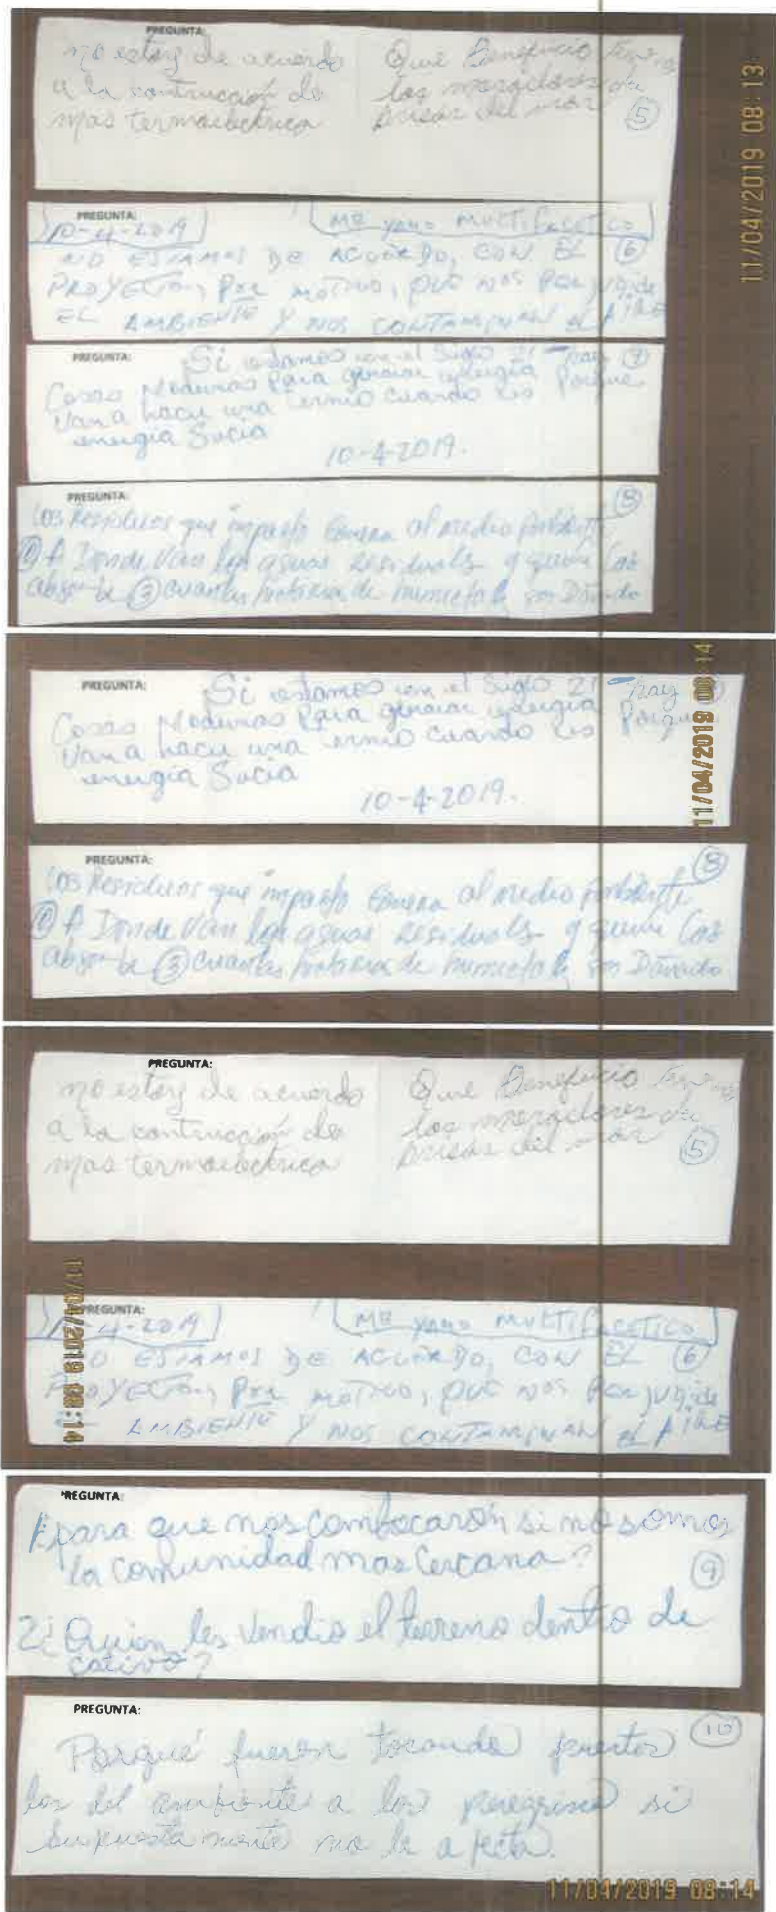 PREGUNTA:
no estoy de acuerdo
a la contrucción de
mas termoelectrica
Que Beneficio
los moradores de
brisas del mar
5
11/04/2019 08:13
PREGUNTA:
10-4-2019
ME YAMO MULTIFACETICO
NO ESTAMOS DE ACUERDO, CON EL 6
PROYECTO, POR MOTIVO, QUE NOS PERJUDICA
EL AMBIENTE Y NOS CONTAMINAN EL AIRE
PREGUNTA:
Si estamos en el Siglo 21 hay 7
Cosas Modernas Para generar energia Porque
Van a hacer una termo cuando es
energia Sucia
10-4-2019.
PREGUNTA:
8
Los Residuos que impacto al medio Ambiente
A Donde Van las aguas residuales y quien las
absorbe 3 cuantas de son Dañado
PREGUNTA:
Si estamos en el Siglo 21 hay
Cosas Modernas Para generar energia Porque
Van a hacer una termo cuando es
energia Sucia
10-4-2019.
11/04/2019 08:14
PREGUNTA:
8
Los Residuos que impacto al medio Ambiente
A Donde Van las aguas residuales y quien las
absorbe 3 cuantas de son Dañado
PREGUNTA:
no estoy de acuerdo
a la contrucción de
mas termoelectrica
Que Beneficio
los moradores de
brisas del mar
5
11/04/2019 08:14
PREGUNTA:
10-4-2019
ME YAMO MULTIFACETICO
NO ESTAMOS DE ACUERDO, CON EL 6
PROYECTO, POR MOTIVO, QUE NOS PERJUDICA
EL AMBIENTE Y NOS CONTAMINAN EL AIRE
PREGUNTA:
1 para que nos combocarón si no somos
la comunidad mas Cercana?
9
2¿ Quien les vendio el terreno dentro de
cativo?
PREGUNTA:
10
Porqué fueron tocando puertas
los del ambiente a los peregrino si
supuestamente no le afecta.
11/04/2019 08:14